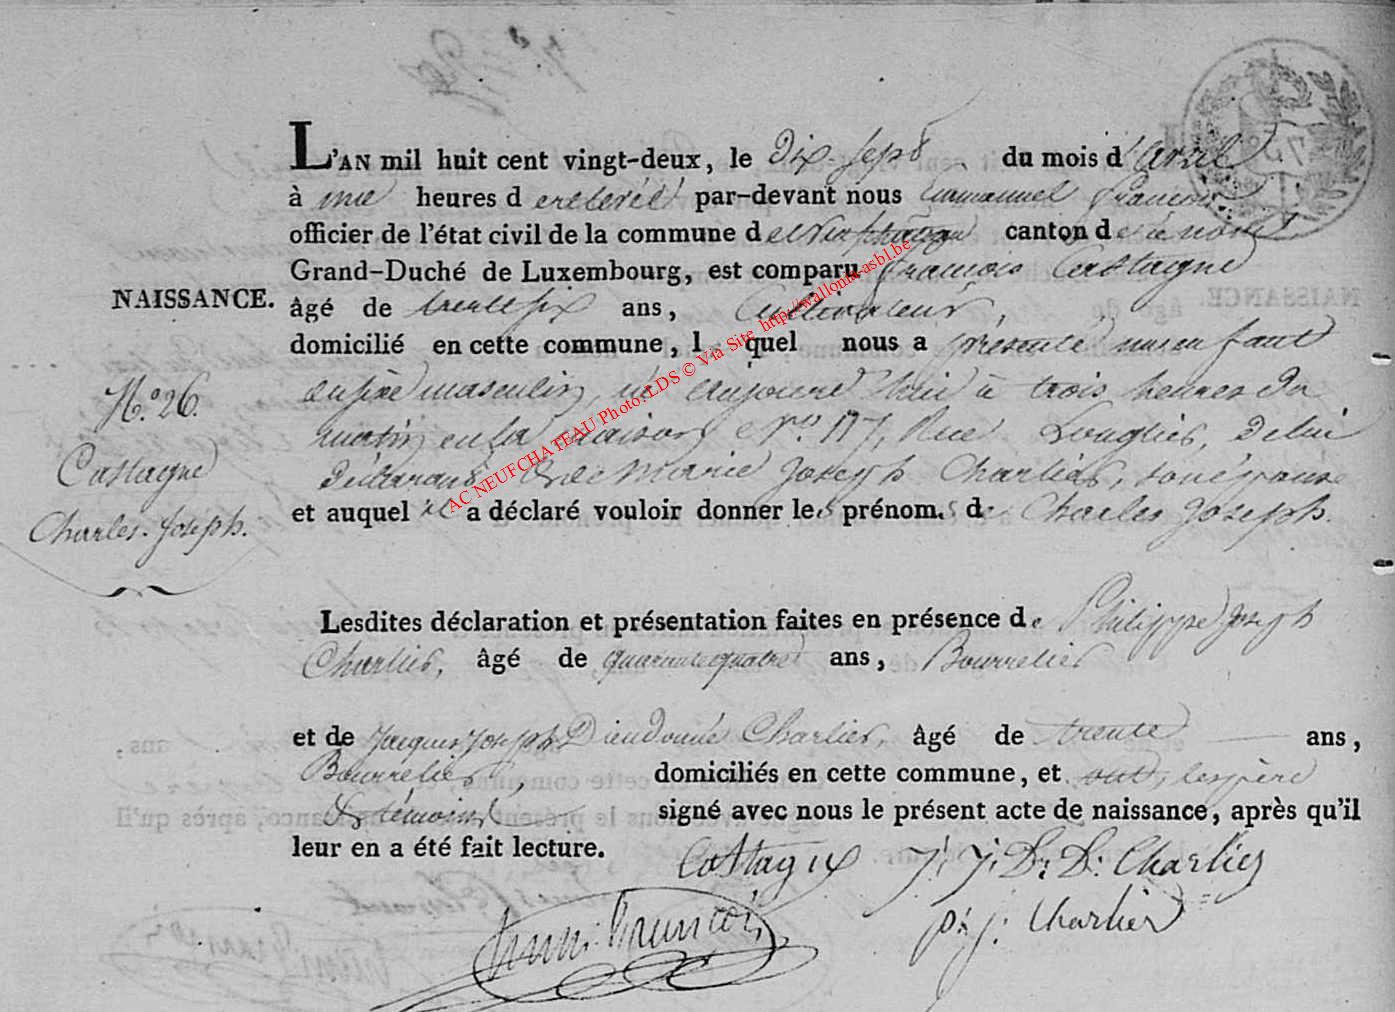 L'AN mil huit cent vingt-deux, le Dix-Sept du mois d'Avril
à une heures d e relevée par-devant nous Emmanuel François
officier de l'état civil de la commune de Neufchâteau canton de ce nom
Grand-Duché de Luxembourg, est comparu François Castagne
NAISSANCE.
âgé de trente six ans, Cultivateur,
domicilié en cette commune, lequel nous a présenté un enfant
N.o 26.
du sexe masculin, né aujourd'hui à trois heures du
matin, en sa maison N.o 117, Rue Longlier, de lui
Castagne
déclarant & de Marie Joseph Charlier, son épouse
Charles-Joseph.
et auquel il a déclaré vouloir donner les prénoms de Charles Joseph.
Lesdites déclaration et présentation faites en présence de Philippe Joseph
Charlier, âgé de quarante quatre ans, Bourrelier
et de Jacques Joseph Dieudonné Charlier, âgé de trente ans,
Bourrelier, domiciliés en cette commune, et ont, les père
& témoins signé avec nous le présent acte de naissance, après qu'il
leur en a été fait lecture.
Castagne J: J: D: D: Charlier
p: j: Charlier
AC NEUFCHATEAU Photo: LDS © Via Site http://wallonia-asbl.be